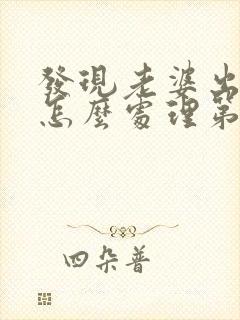 發現老婆出
怎麼處理第
四朵普